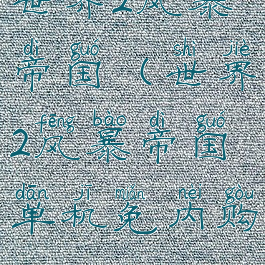 世界2风暴
dì guó shì jiè
帝国(世界
fēng bào dì guó
2风暴帝国
dān jī miǎn nèi gòu
单机免内购